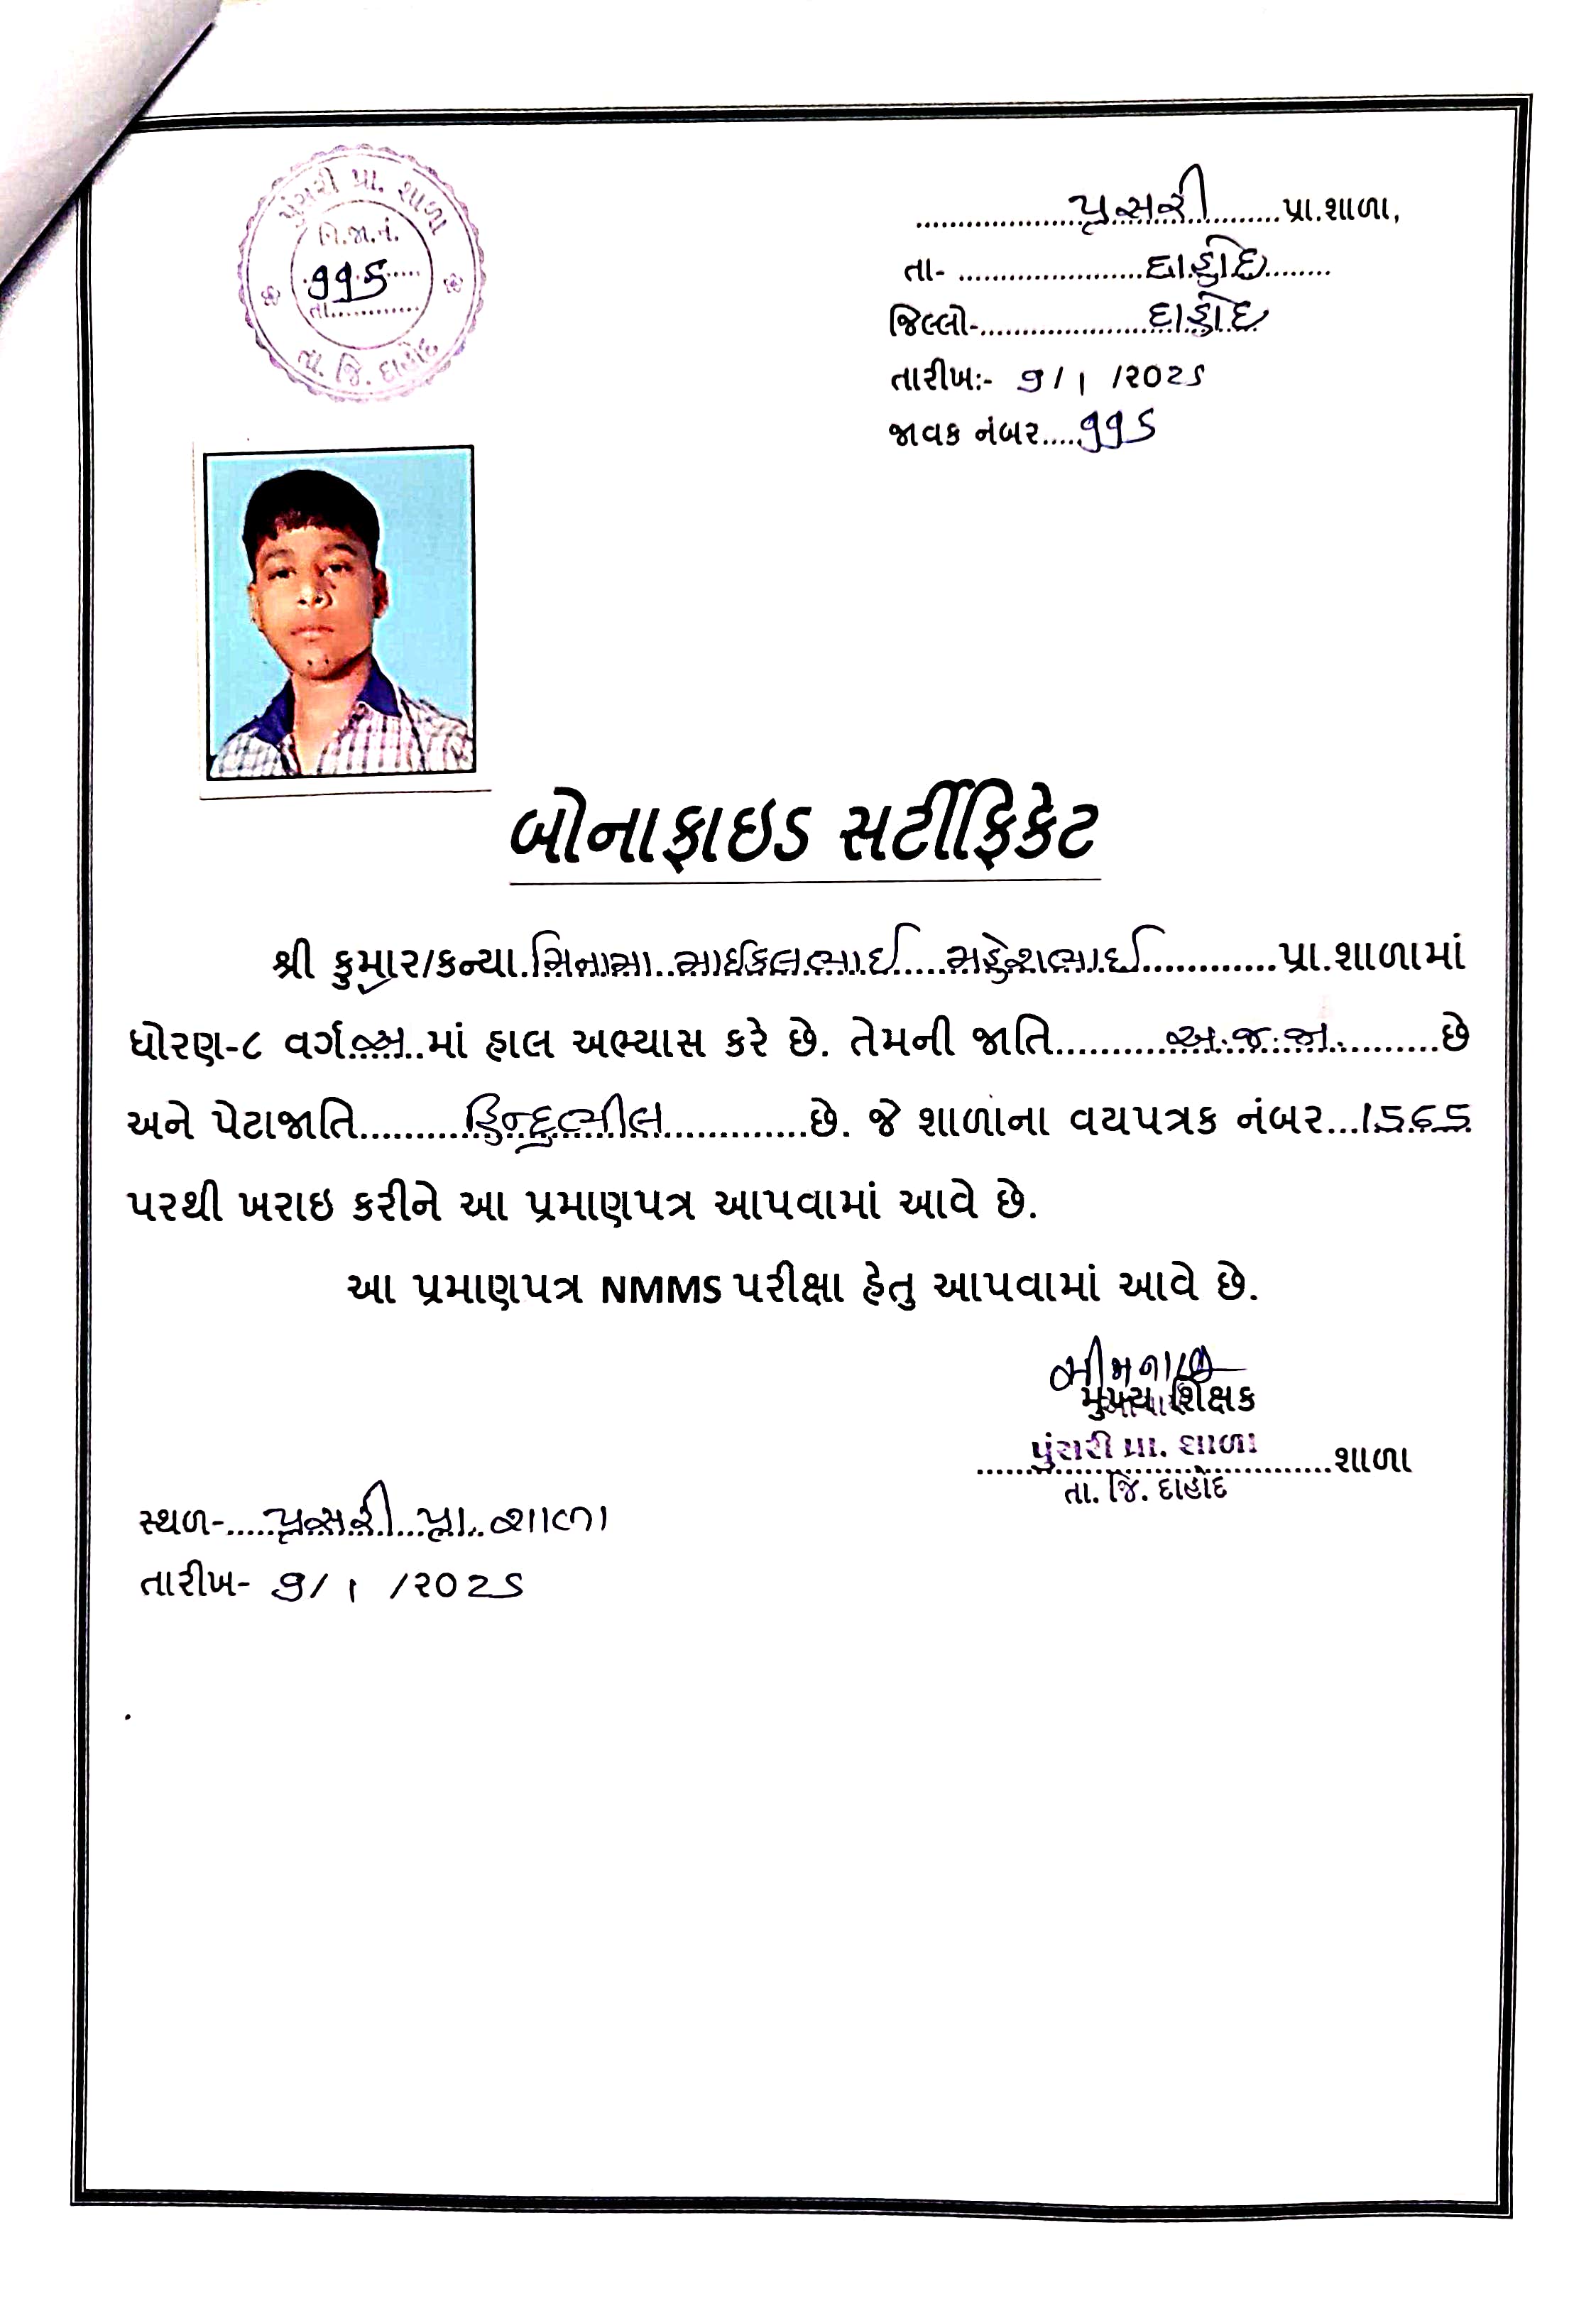 પુંસરી પ્રા. શાળા
નિ.જા.નં.
૧૧૬
તા............
તા. જિ. દાહોદ
પુંસરી પ્રા.શાળા,
તા- દાહોદ
જિલ્લો- દાહોદ
તારીખ:- ૭/ ૧ /૨૦૨૬
જાવક નંબર....૧૧૬
બોનાફાઇડ સર્ટીફિકેટ
શ્રી કુમાર/કન્યા. મિનામા માઈકલભાઈ મહેશભાઈ પ્રા.શાળામાં
ધોરણ-૮ વર્ગ. અ માં હાલ અભ્યાસ કરે છે. તેમની જાતિ અ.જ.જા. છે
અને પેટાજાતિ હિન્દુભીલ છે. જે શાળાના વયપત્રક નંબર
પરથી ખરાઇ કરીને આ પ્રમાણપત્ર આપવામાં આવે છે.
આ પ્રમાણપત્ર NMMS પરીક્ષા હેતુ આપવામાં આવે છે.
મુખ્ય શિક્ષક
પુંસરી પ્રા. શાળા શાળા
તા. જિ. દાહોદ
સ્થળ- પુંસરી પ્રા. શાળા
તારીખ- ૭/ ૧ /૨૦૨૬